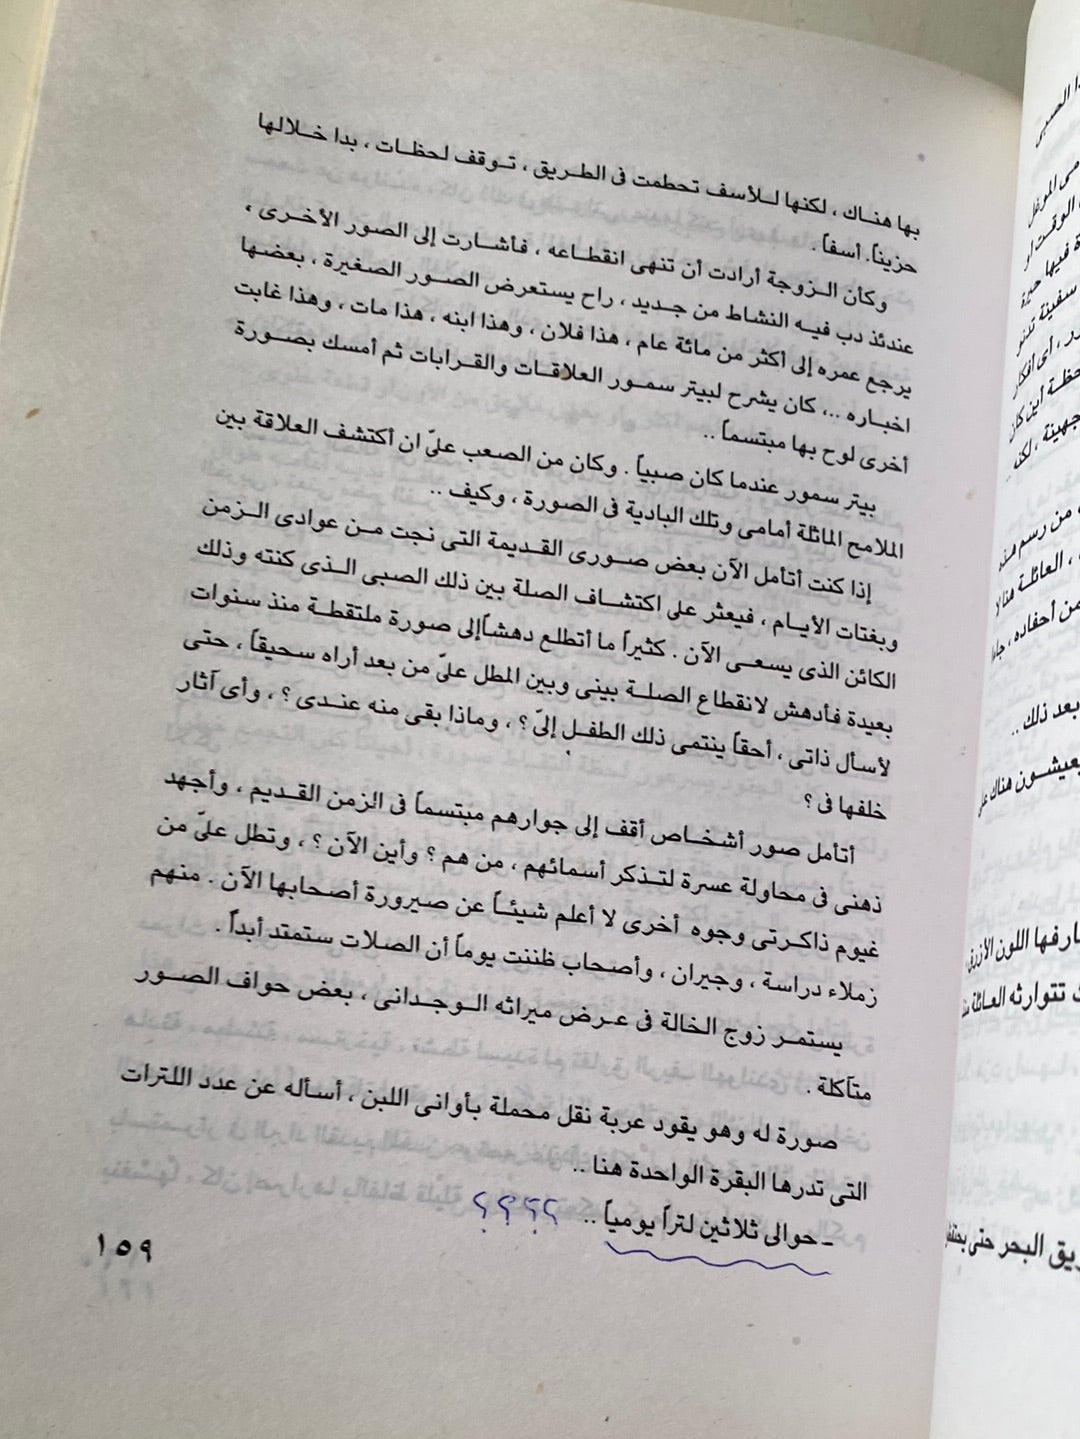 بها هناك ، لكنها للأسف تحطمت فى الطريق ، توقف لحظات ، بدا خلالها
حزيناً. أسفاً .
وكأن الزوجة أرادت أن تنهى انقطاعه ، فأشارت إلى الصور الأخرى ،
عندئذ دب فيه النشاط من جديد ، راح يستعرض الصور الصغيرة ، بعضها
يرجع عمره إلى أكثر من مائة عام ، هذا فلان ، وهذا ابنه ، هذا مات ، وهذا غابت
اخباره ..، كان يشرح لبيتر سمور العلاقات والقرابات ثم أمسك بصورة
أخرى لوح بها مبتسماً ..
بيتر سمور عندما كان صبياً . وكان من الصعب علىّ ان أكتشف العلاقة بين
الملامح الماثلة أمامى وتلك البادية فى الصورة ، وكيف ..
إذا كنت أتأمل الآن بعض صورى القديمة التى نجت من عوادى الزمن
وبغتات الأيام ، فيعثر على اكتشاف الصلة بين ذلك الصبى الذى كنته وذلك
الكائن الذى يسعى الآن . كثيراً ما أتطلع دهشاًإلى صورة ملتقطة منذ سنوات
بعيدة فأدهش لانقطاع الصلة بينى وبين المطل علىّ من بعد أراه سحيقاً ، حتى
لأسأل ذاتى ، أحقاً ينتمى ذلك الطفل إلىّ ؟ ، وماذا بقى منه عندى ؟ ، وأى آثار
خلفها فى ؟
أتأمل صور أشخاص أقف إلى جوارهم مبتسماً فى الزمن القديم ، وأجهد
ذهنى فى محاولة عسرة لتذكر أسمائهم ، من هم ؟ وأين الآن ؟ ، وتطل علىّ من
غيوم ذاكرتى وجوه أخرى لا أعلم شيئاً عن صيرورة أصحابها الآن . منهم
زملاء دراسة ، وجيران ، وأصحاب ظننت يوماً أن الصلات ستمتد أبداً .
يستمر زوج الخالة فى عرض ميراثه الوجدانى ، بعض حواف الصور
متآكلة .
صورة له وهو يقود عربة نقل محملة بأوانى اللبن ، أسأله عن عدد اللترات
التى تدرها البقرة الواحدة هنا ..
ـ حوالى ثلاثين لتراً يومياً .. ؟؟؟؟
١٥٩
الصبى
الموغل
الوقت او
فيها حيرة
سفينة تدنو
أى افكار
أين كان
جهينة ، لكنه ..
من رسم هذه
، العائلة هنا لا
من أحفاده ،
بعد ذلك ..
يعيشون هناك
اللون الأزرق
تتوارثه العائلة
البحر حتى